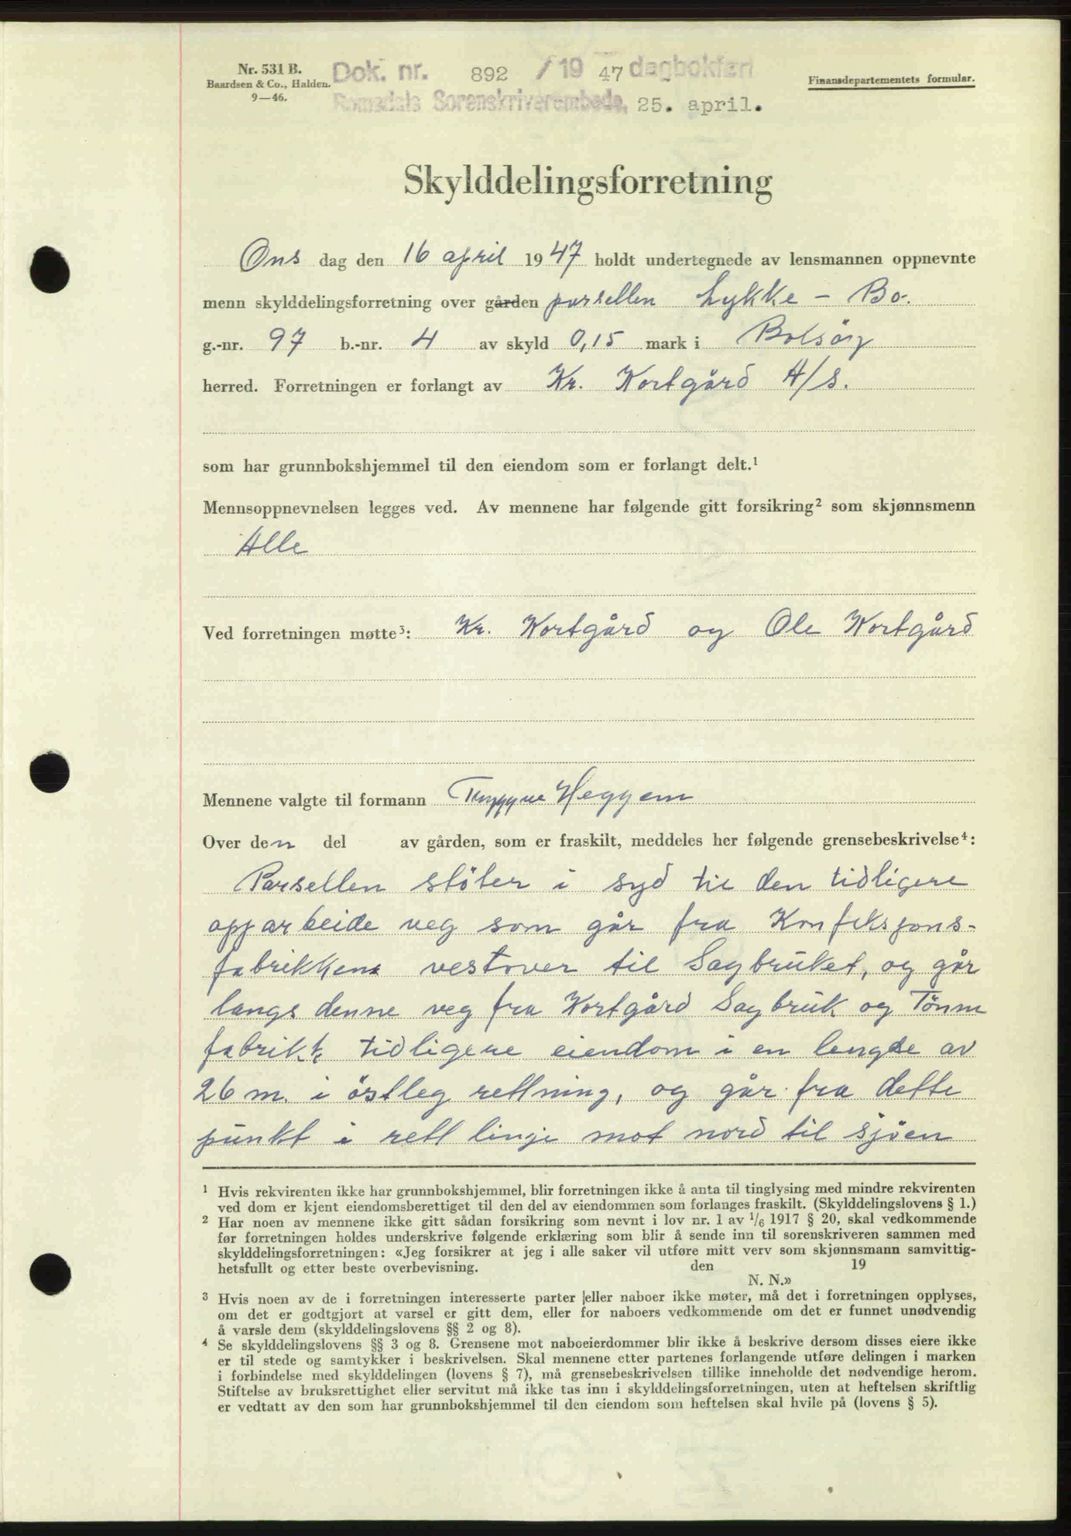 Nr. 531 B.
Baardsen & Co., Halden.
9—46.
Dok. nr. 892 / 19 47 dagbokført
Romsdals Sorenskriverembede, 25. april.
Finansdepartementets formular.
Skylddelingsforretning
Ons dag den 16 april 1947 holdt undertegnede av lensmannen oppnevnte
menn skylddelingsforretning over gården parsellen Lykke - Bo.
g.-nr. 97 b.-nr. 4 av skyld 0,15 mark i Bolsøy
herred. Forretningen er forlangt av Kr. Kortgård A/S.
som har grunnbokshjemmel til den eiendom som er forlangt delt.¹
Mennsoppnevnelsen legges ved. Av mennene har følgende gitt forsikring² som skjønnsmenn
Alle
Ved forretningen møtte³: Kr. Kortgård og Ole Kortgård
Mennene valgte til formann Heggem
Over den del av gården, som er fraskilt, meddeles her følgende grensebeskrivelse⁴:
Parsellen støter i syd til den tidligere
opparbeide veg som går fra Konfeksjons-
fabrikken vestover til Sagbruket, og går
langs denne veg fra Kortgård Sagbruk og Tønne
fabrikk tidligere eiendom i en lengde av
26 m. i østleg rettning, og går fra dette
punkt i rett linje mot nord til sjøen
¹ Hvis rekvirenten ikke har grunnbokshjemmel, blir forretningen ikke å anta til tinglysing med mindre rekvirenten
ved dom er kjent eiendomsberettiget til den del av eiendommen som forlanges fraskilt. (Skylddelingslovens § 1.)
² Har noen av mennene ikke gitt sådan forsikring som nevnt i lov nr. 1 av 1/6 1917 § 20, skal vedkommende
før forretningen holdes underskrive følgende erklæring som blir å sende inn til sorenskriveren sammen med
skylddelingsforretningen: «Jeg forsikrer at jeg i alle saker vil utføre mitt verv som skjønnsmann samvittig-
hetsfullt og etter beste overbevisning. den 19
N. N.»
³ Hvis noen av de i forretningen interesserte parter eller naboer ikke møter, må det i forretningen opplyses,
om det er godtgjort at varsel er gitt dem, eller for naboers vedkommende om det er funnet unødvendig
å varsle dem (skylddelingslovens §§ 2 og 8).
⁴ Se skylddelingslovens §§ 3 og 8. Grensene mot naboeierdommer blir ikke å beskrive dersom disses eiere ikke
er til stede og samtykker i beskrivelsen. Skal mennene etter partenes forlangende utføre delingen i marken
i forbindelse med skylddelingen (lovens § 7), må grensebeskrivelsen tillike inneholde det nødvendige herom.
Stiftelse av bruksrettighet eller servitut må ikke tas inn i skylddelingsforretningen, uten at heftelsen skriftlig
er vedtatt av den som har grunnbokshjemmel til den eiendom som heftelsen skal hvile på (lovens § 5).